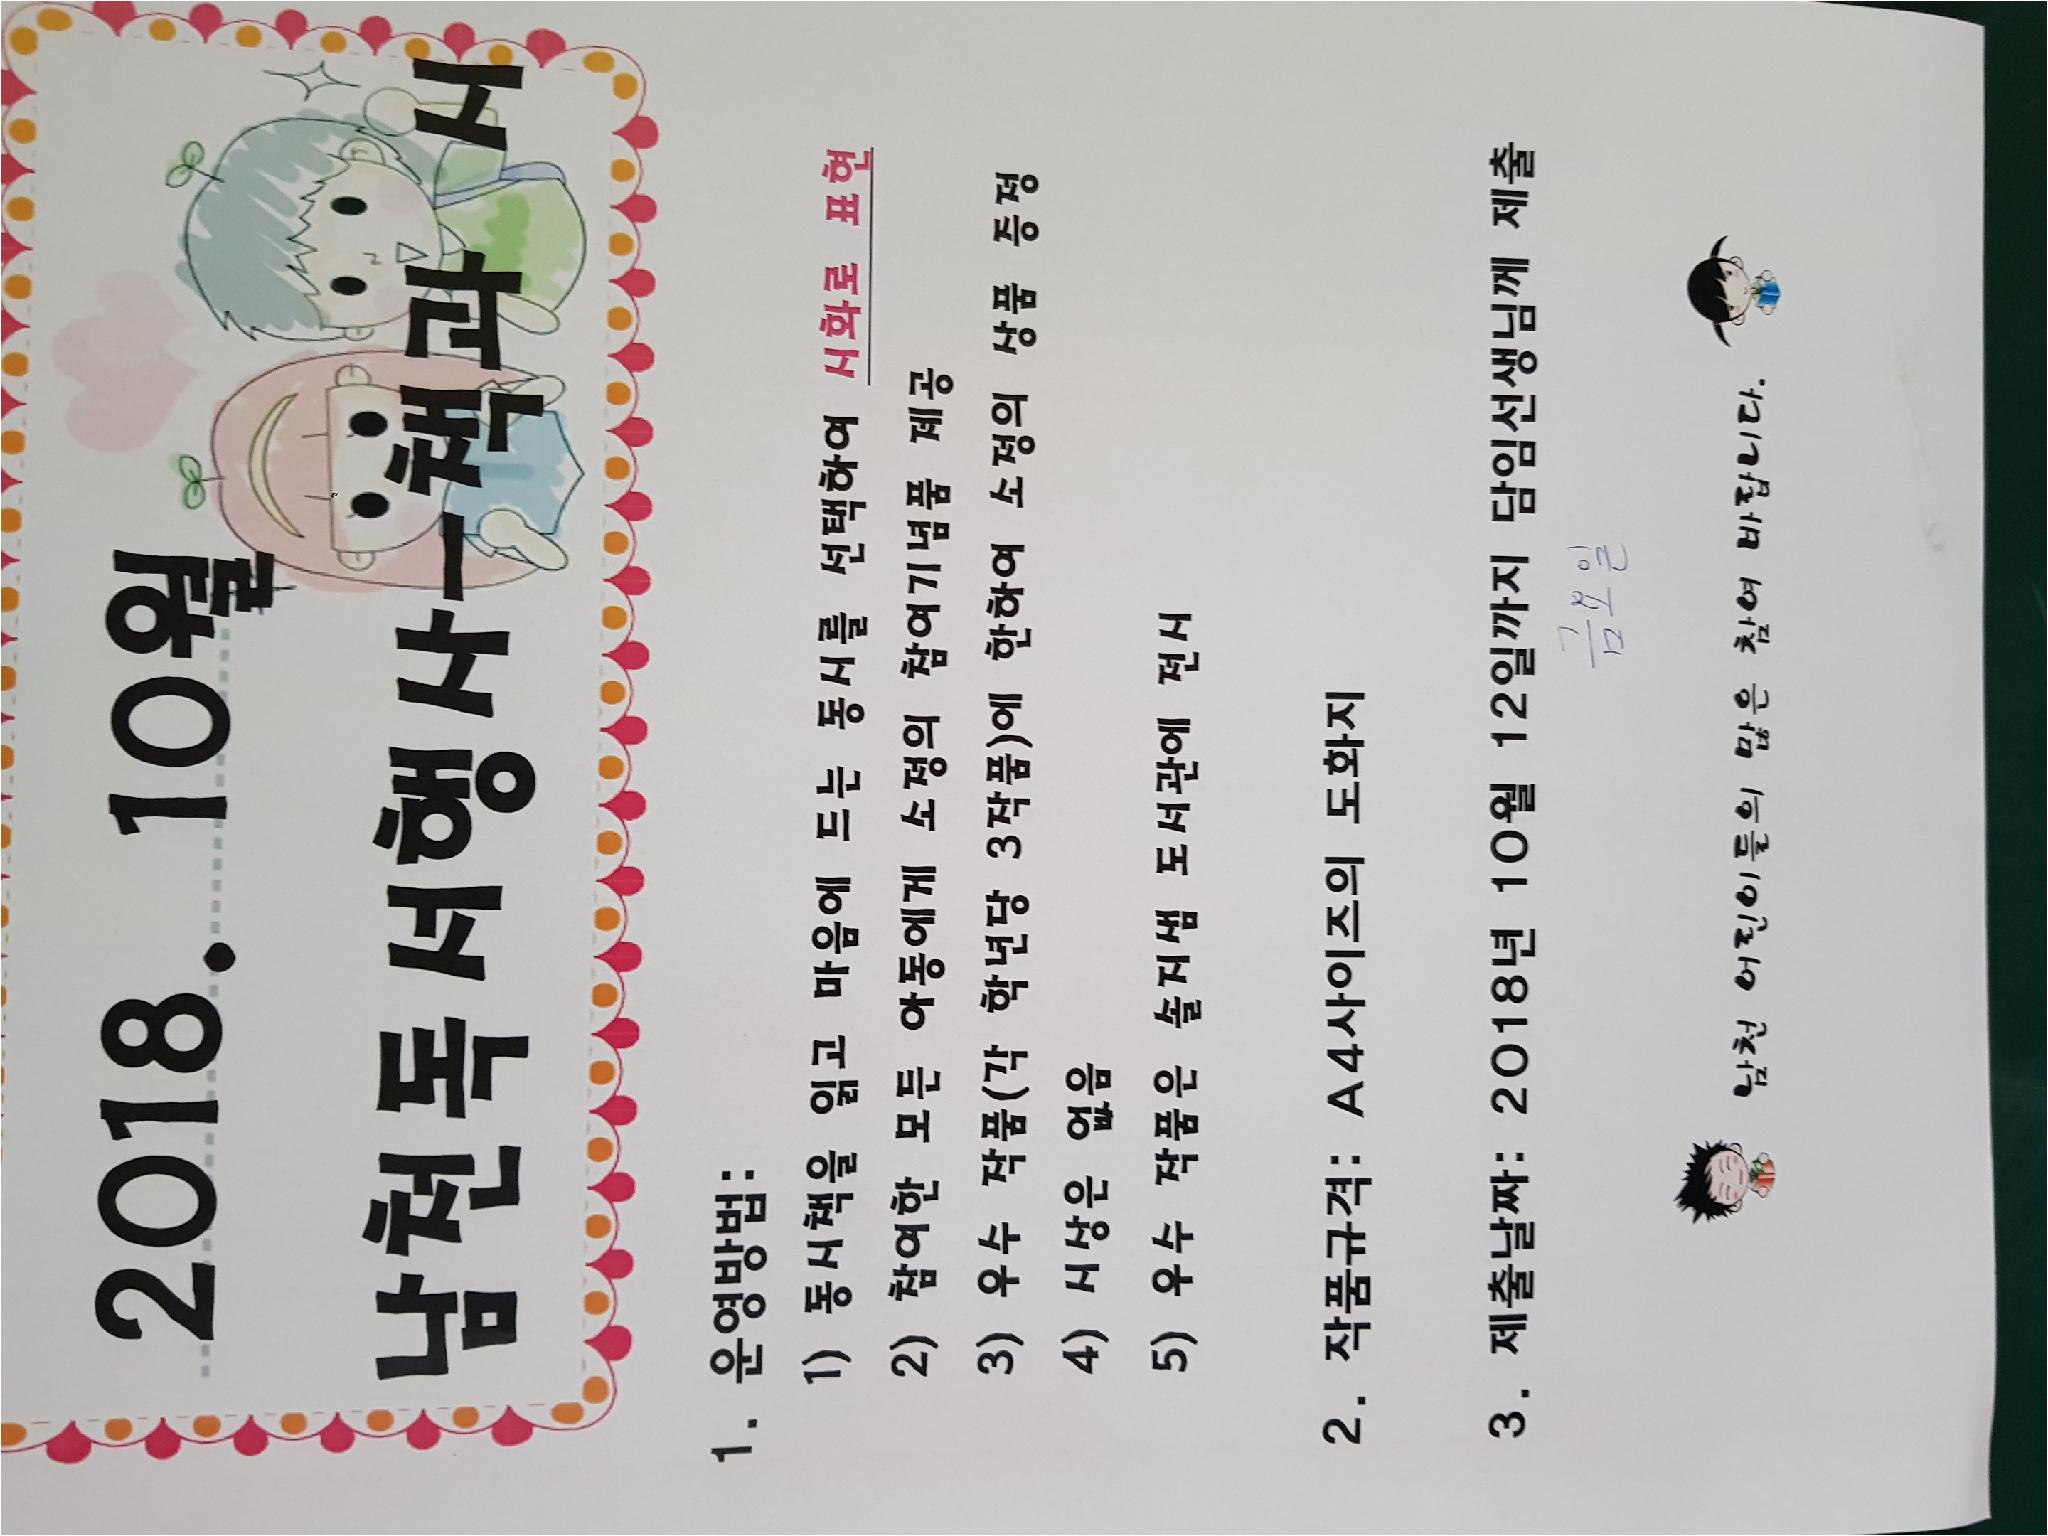 2018. 10월
남천독서행사-책과 시
1. 운영방법:
1) 동시책을 읽고 마음에 드는 동시를 선택하여 시화로 표현
2) 참여한 모든 아동에게 소정의 참여기념품 제공
3) 우수 작품(각 학년당 3작품)에 한하여 소정의 상품 증정
4) 시상은 없음
5) 우수 작품은 솔지샘 도서관에 전시
2. 작품규격: A4사이즈의 도화지
3. 제출날짜: 2018년 10월 12일까지 담임선생님께 제출
금요일
남천 어린이들의 많은 참여 바랍니다.